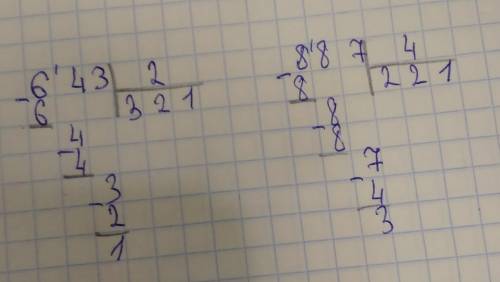 6'43 2
- 6 321
4
- 4
3
- 2
1
8'87 4
- 8 221
8
- 8
7
- 4
3